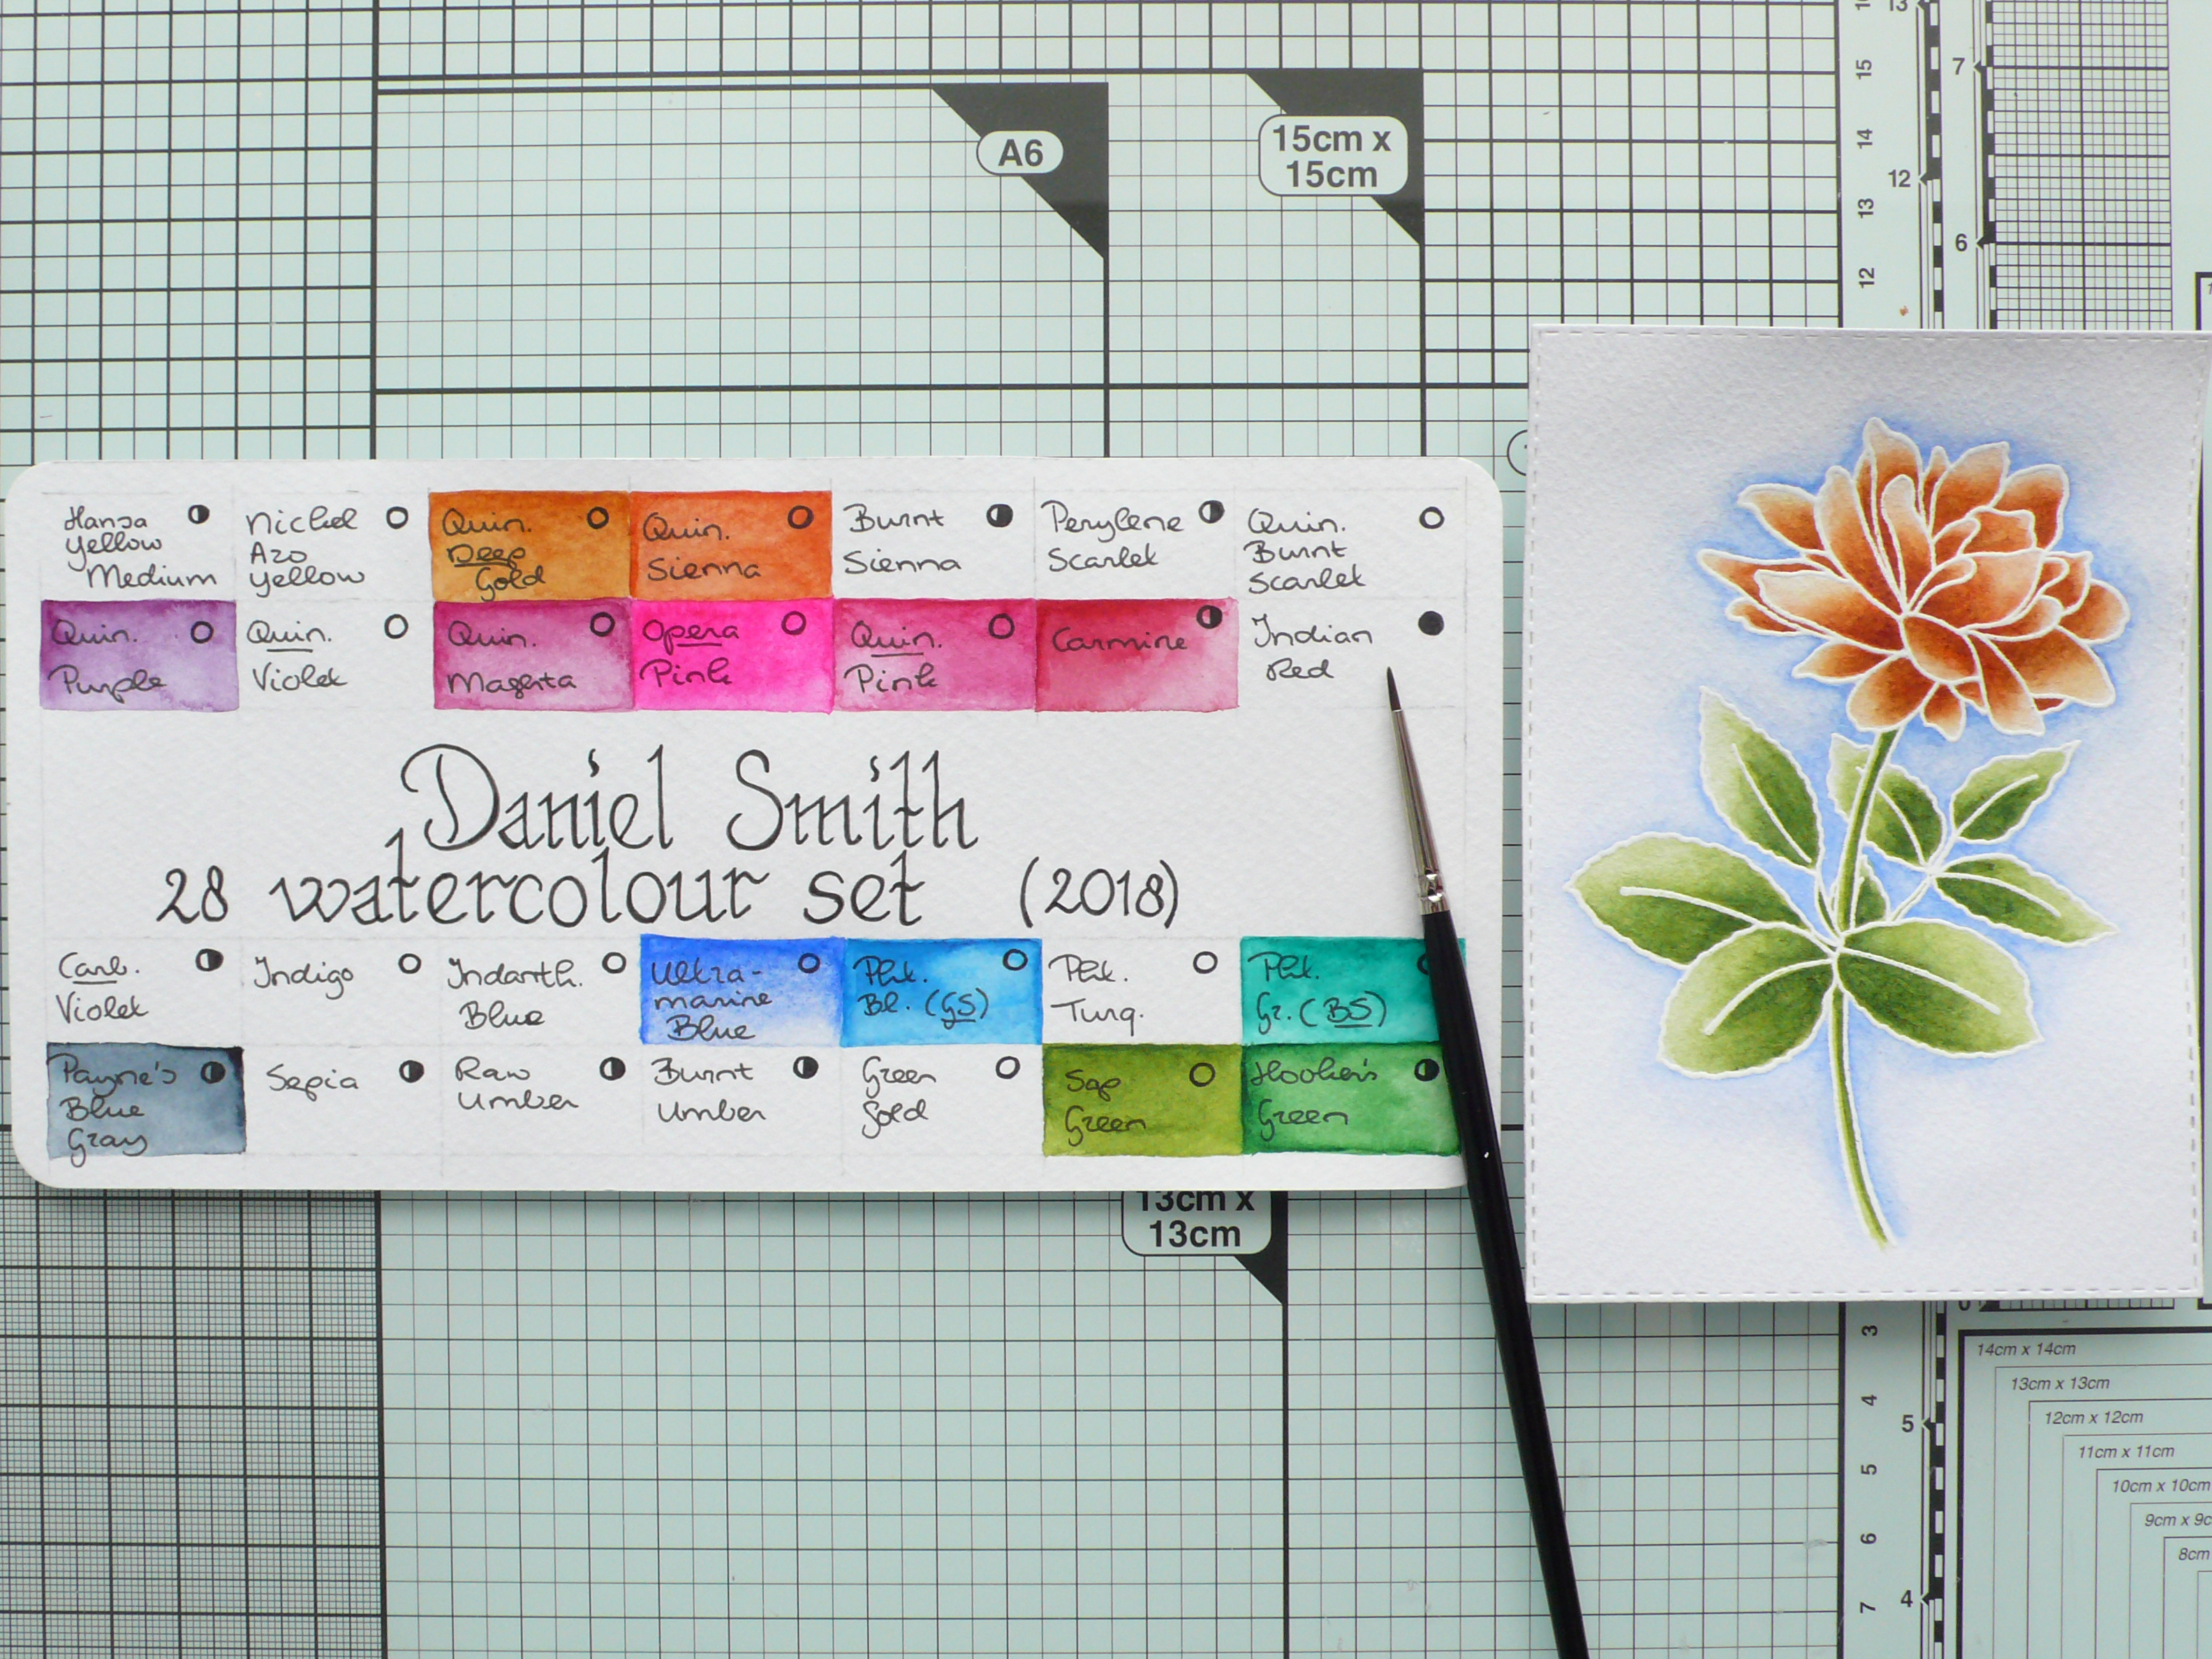 A6
15cm x
15cm
13
7
12
6
15
14
13
12
Hansa
Yellow
Medium
Nickel
Azo
Yellow
Quin.
Deep
Gold
Quin.
Sienna
Burnt
Sienna
Perylene
Scarlet
Quin.
Burnt
Scarlet
Quin.
Purple
Quin.
Violet
Quin.
Magenta
Opera
Pink
Quin.
Pink
Carmine
Indian
Red
Daniel Smith
28 watercolour set (2018)
Carb.
Violet
Indigo
Indanth.
Blue
Ultra-
marine
Blue
Pht.
Bl. (GS)
Pht.
Turq.
Pht.
Gr. (BS)
Payne's
Blue
Gray
Sepia
Raw
Umber
Burnt
Umber
Green
Gold
Sap
Green
Hooker's
Green
13cm x
13cm
3
4
5
6
7
5
4
14cm x 14cm
13cm x 13cm
12cm x 12cm
11cm x 11cm
10cm x 10cm
9cm x 9c
8cm